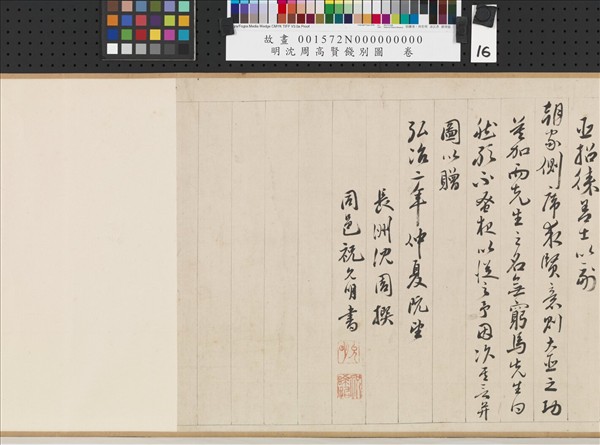 故畫 001572N000000000
明沈周高賢餞別圖 卷
16
亟招徠善士以副
朝家側席求賢意則大丞之功
益加而先生之名無窮焉先生曰
以從之予因次其言并
圖以贈
弘治二年仲夏既望
長洲沈周撰
同邑祝允明書